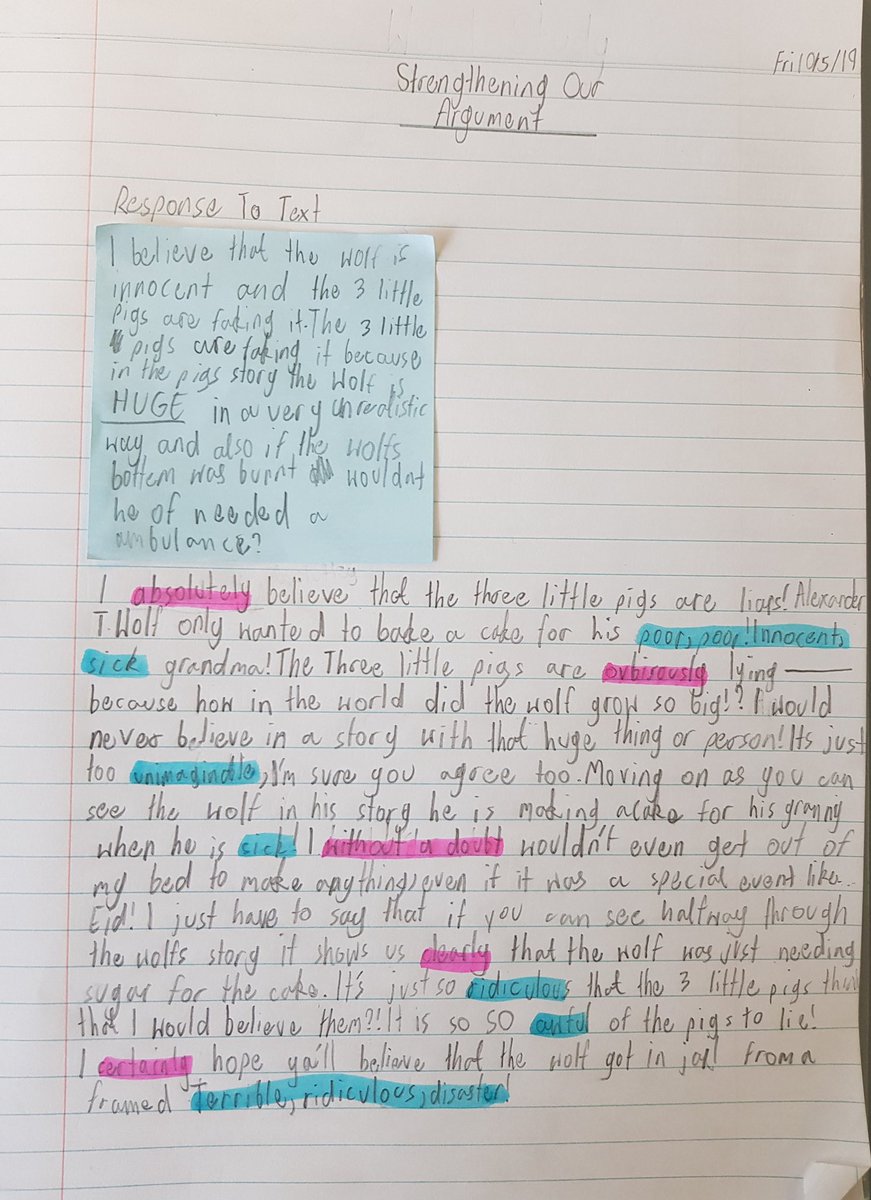 Fri 10/5/19
Strengthening Our
Argument
Response To Text
I believe that the wolf is
innocent and the 3 little
pigs are faking it. The 3 little
pigs are faking it because
in the pigs story the Wolf is
HUGE in a very unrealistic
way and also if the wolfs
bottem was burnt wouldnt
he of needed a
ambulance?
I absolutely believe that the three little pigs are liars! Alexander
T. Wolf only wanted to bake a cake for his poor, poor! Innocent,
sick grandma! The Three little pigs are ovbirously lying
because how in the world did the wolf grow so big!? I would
never believe in a story with that huge thing or person! Its just
too unimagindle, I'm sure you agree too. Moving on as you can
see the wolf in his story he is making a cake for his granny
when he is sick! I without a doubt wouldn't even get out of
my bed to make anything, even if it was a special event like
Eid! I just have to say that if you can see halfway through
the wolfs story it shows us clearly that the wolf was just needing
sugar for the cake. It's just so ridiculous that the 3 little pigs think
that I would believe them?! It is so SO awful of the pigs to lie!
I certainly hope ya'll believe that the wolf got in jail from a
framed Terrible, ridiculous, disaster!